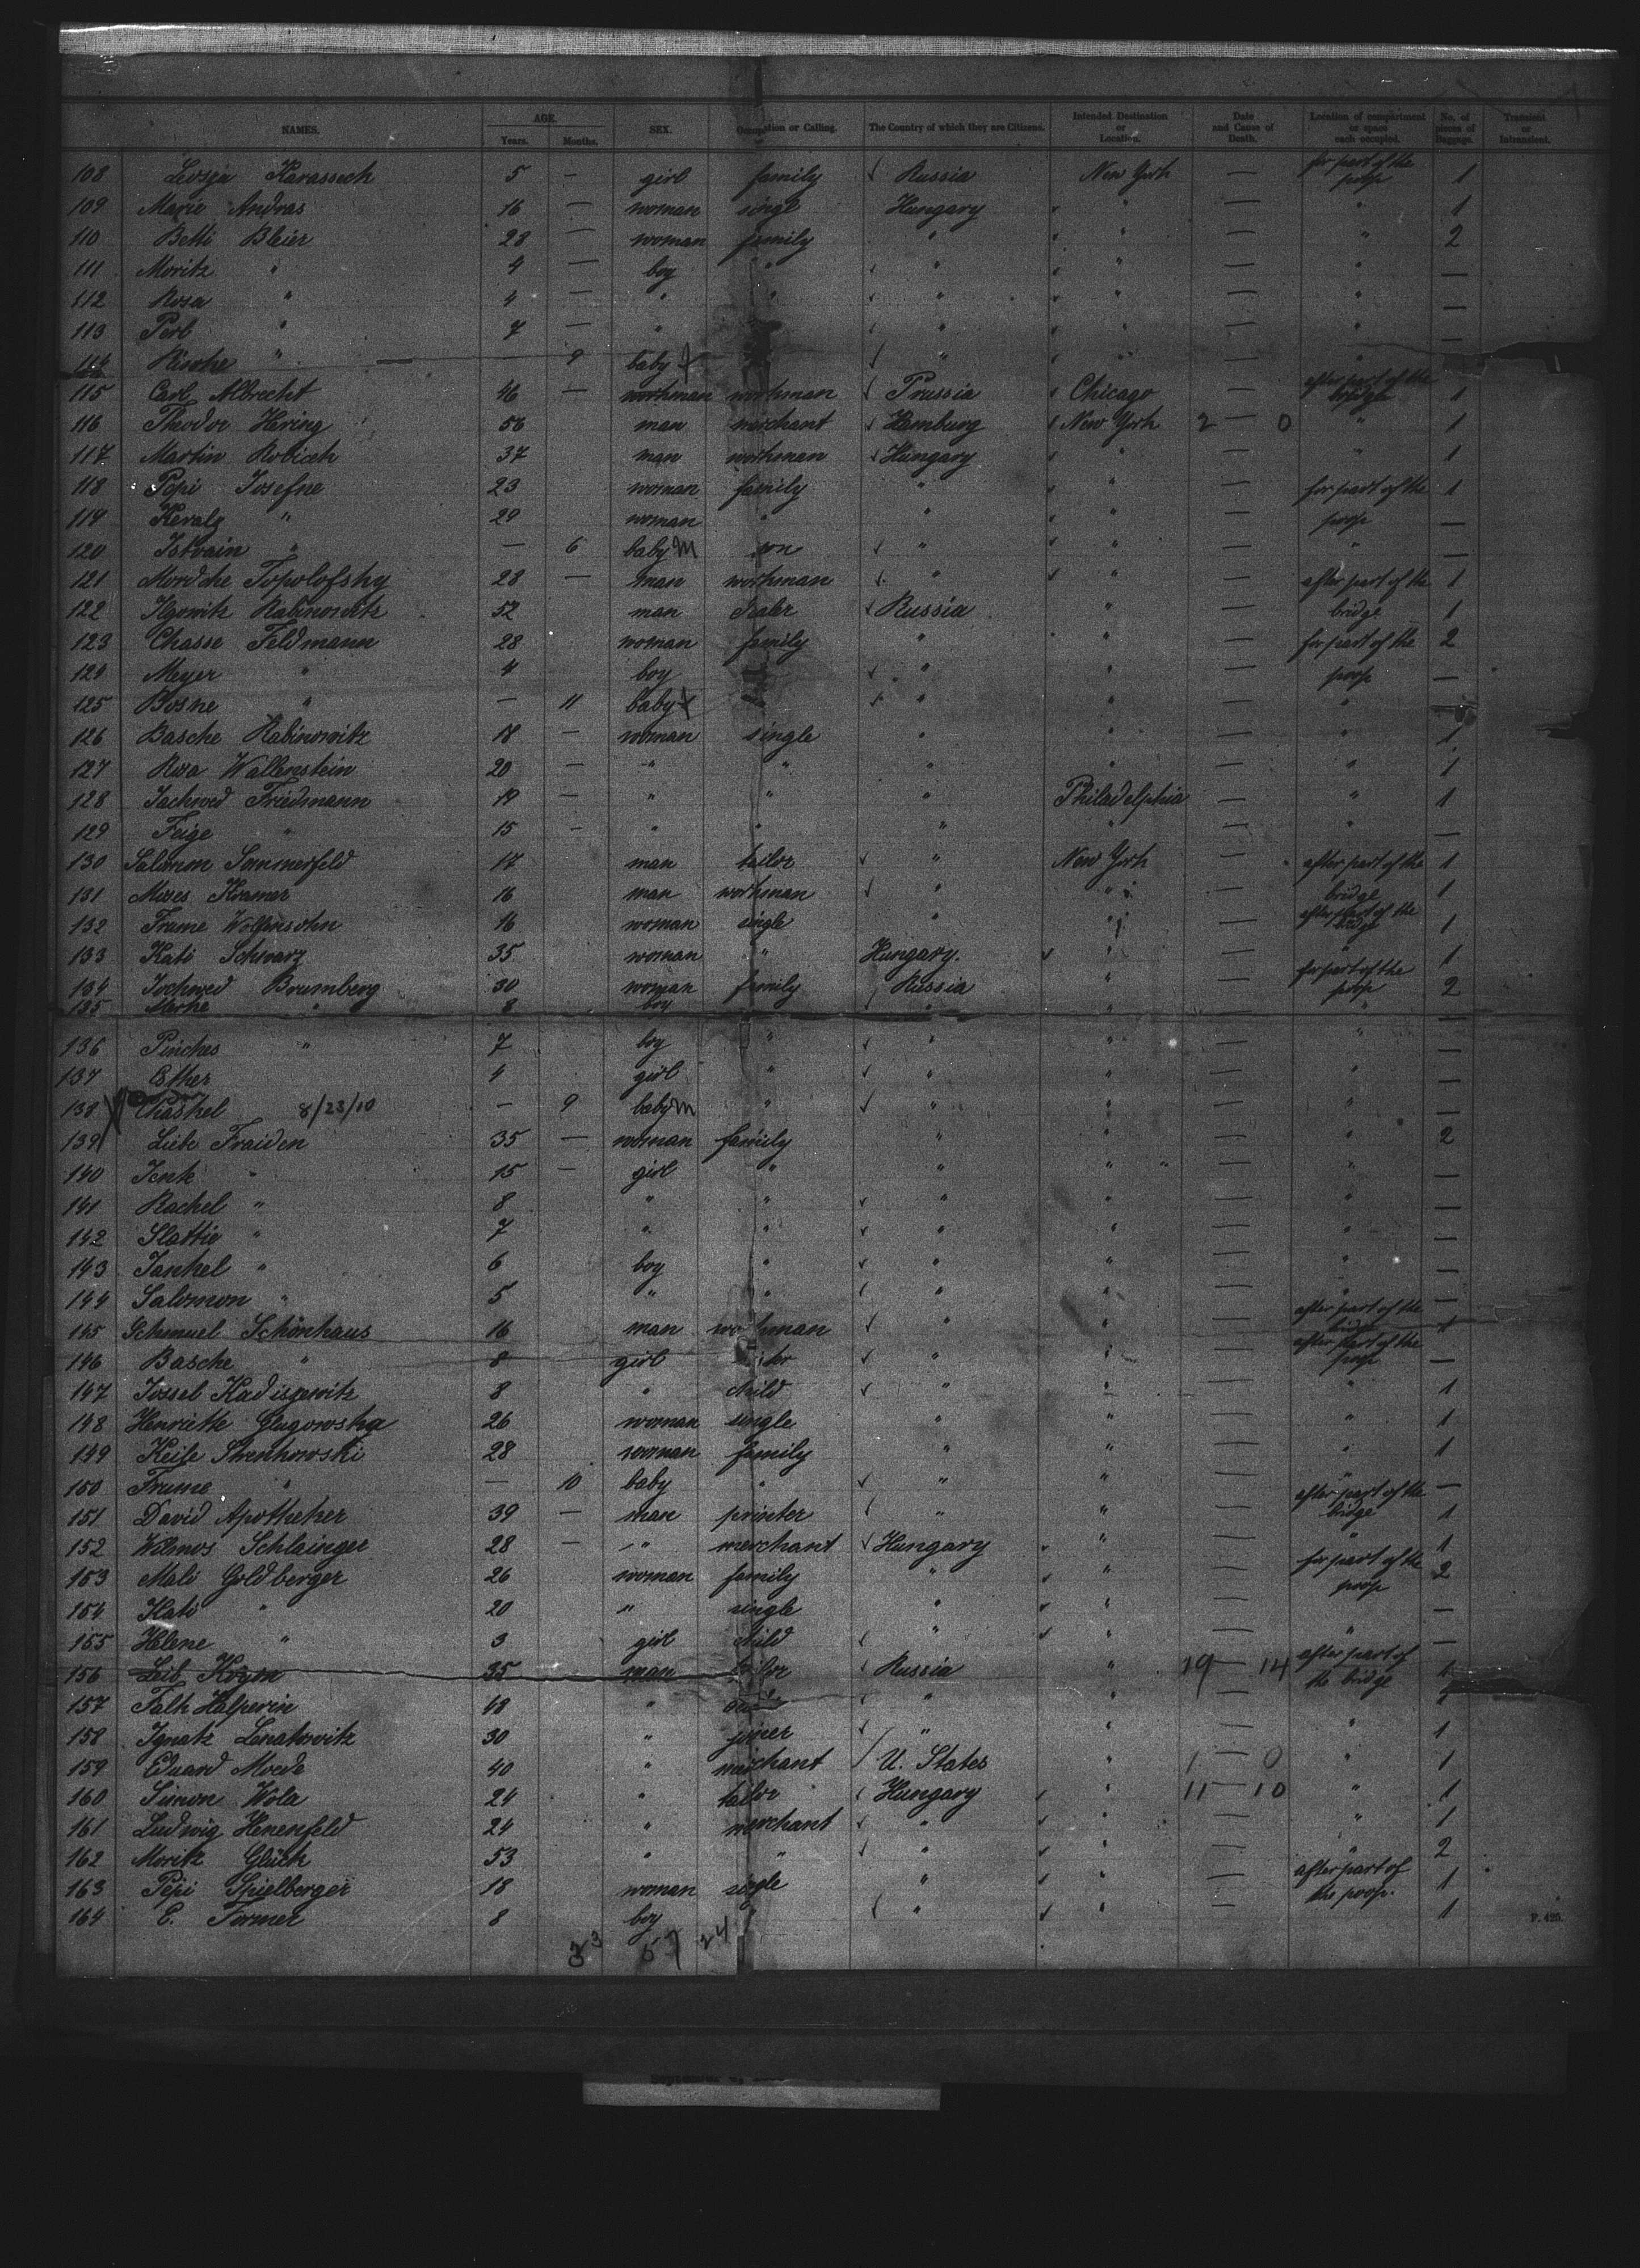 NAMES. AGE. Years. Months. SEX. Occupation or Calling. The Country of which they are Citizens. Intended Destination or Location. Date and Cause of Death. Location of compartment or space each occupied. No. of pieces of Baggage. Transient or Intransient.
108 Karassech 5 — girl family Russia New York — for part of the poop 1
109 Marie Andras 16 — woman singl Hungary " — " 1
110 Betti Bleier 28 — woman family " " — " 2
111 Moritz " 4 — boy " " " — " —
112 Rosa " 4 — " " " " — " —
113 Perl " 7 — " " " " — " —
114 " — 9 baby " " — " —
115 Carl Albrecht 46 — workman workman Prussia Chicago — after part of the bridge 1
116 Theodor Hering 56 man merchant Hamburg New York 2 — 0 " 1
117 Martin Robicek 37 man workman Hungary " — " 1
118 Pepi Josefne 23 woman family " " — for part of the 1
119 " 29 woman " " " — poop —
120 Istvain " — 6 baby m son " " — " —
121 Mordche Topolofsky 28 — man workman " " — after part of the 1
122 Rabinowitz 52 man dealer Russia " — bridge 1
123 Chasse Feldmann 28 woman family " " — for part of the 2
124 Meyer " 4 boy " " — poop —
125 Bosne " — 11 baby " " — "
126 Basche Rabinowitz 18 — woman single " " — " 1
127 Rosa Wallenstein 20 — " " " " — " 1
128 Jachwed Friedmann 19 — " " " Philadelphia — " 1
129 Feige " 15 — " " " " — " —
130 Salomon Sommerfeld 17 man tailor " New York — after part of the 1
131 Moses Kramer 16 man workman " " — bridge 1
132 Frume Wolfensohn 16 woman single " " — after part of the bridge 1
133 Kati Schwarz 35 woman " Hungary. " — " 1
134 Jochwed Brumberg 30 woman family Russia " — for part of the poop 2
135 " 8 boy " " — " —
136 Pinches " 7 boy " " " — " —
137 Esther 4 girl " " " — " —
138 Chaskel 8/23/10 — 9 baby m " " " — " —
139 Liebe Fraiden 35 — woman family " " — " 2
140 Jenk " 15 — girl " " " " — " —
141 Rachel " 8 " " " " — " —
142 Slattie " 7 " " " " — " —
143 Jankel " 6 boy " " " — " —
144 Salomon " 5 " " " " — " —
145 Schmuel Schönhaus 16 man workman " " — after part of the 1
146 Basche " 8 girl " " — after part of the poop —
147 Jossel Kadiszewitz 8 " child " " — " 1
148 Henriette Glugowska 26 woman single " " — " 1
149 28 woman family " " — " 1
150 Frume " — 10 baby " " " — " —
151 David Apotheker 39 — man printer " " — after part of the bridge 1
152 Wilmos Schlainger 28 — " merchant Hungary " — " 1
153 Mali Goldberger 26 woman family " " — for part of the poop 2
154 Kati " 20 " single " " — —
155 Helene " 3 girl child " " — " —
156 Leib Kogon 35 man tailor Russia " 19 — 14 after part of the bridge 1
157 Falk Halperin 48 " " —
158 Ignatz 30 " joiner " " — " 1
159 Eduard Moede 40 " merchant U. States " 1 — 0 " 1
160 Simon Wola 24 " tailor Hungary " 11 — 10 " 1
161 Ludwig Henenfeld 24 " merchant " " — " 1
162 Moritz Glück 53 " " " " — " 2
163 Pepi Spielberger 18 woman single " " — after part of the poop. 1
164 E. Former 8 boy " " " — 1
57 24
F. 425.